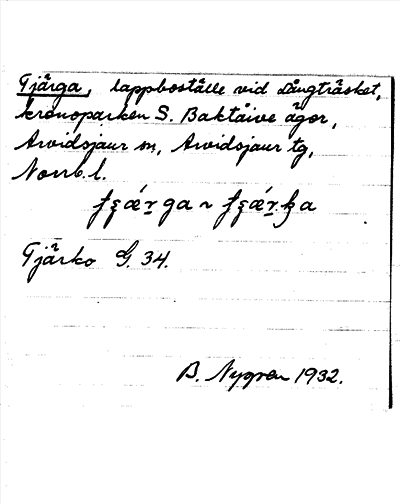 Tjärga, lappboställe vid Långträsket,
kronoparken S. Baktåive ägor,
Arvidsjaur sn, Arvidsjaur tg,
Norrb. l.
Tjärko G. 34.
B. Nygren 1932.